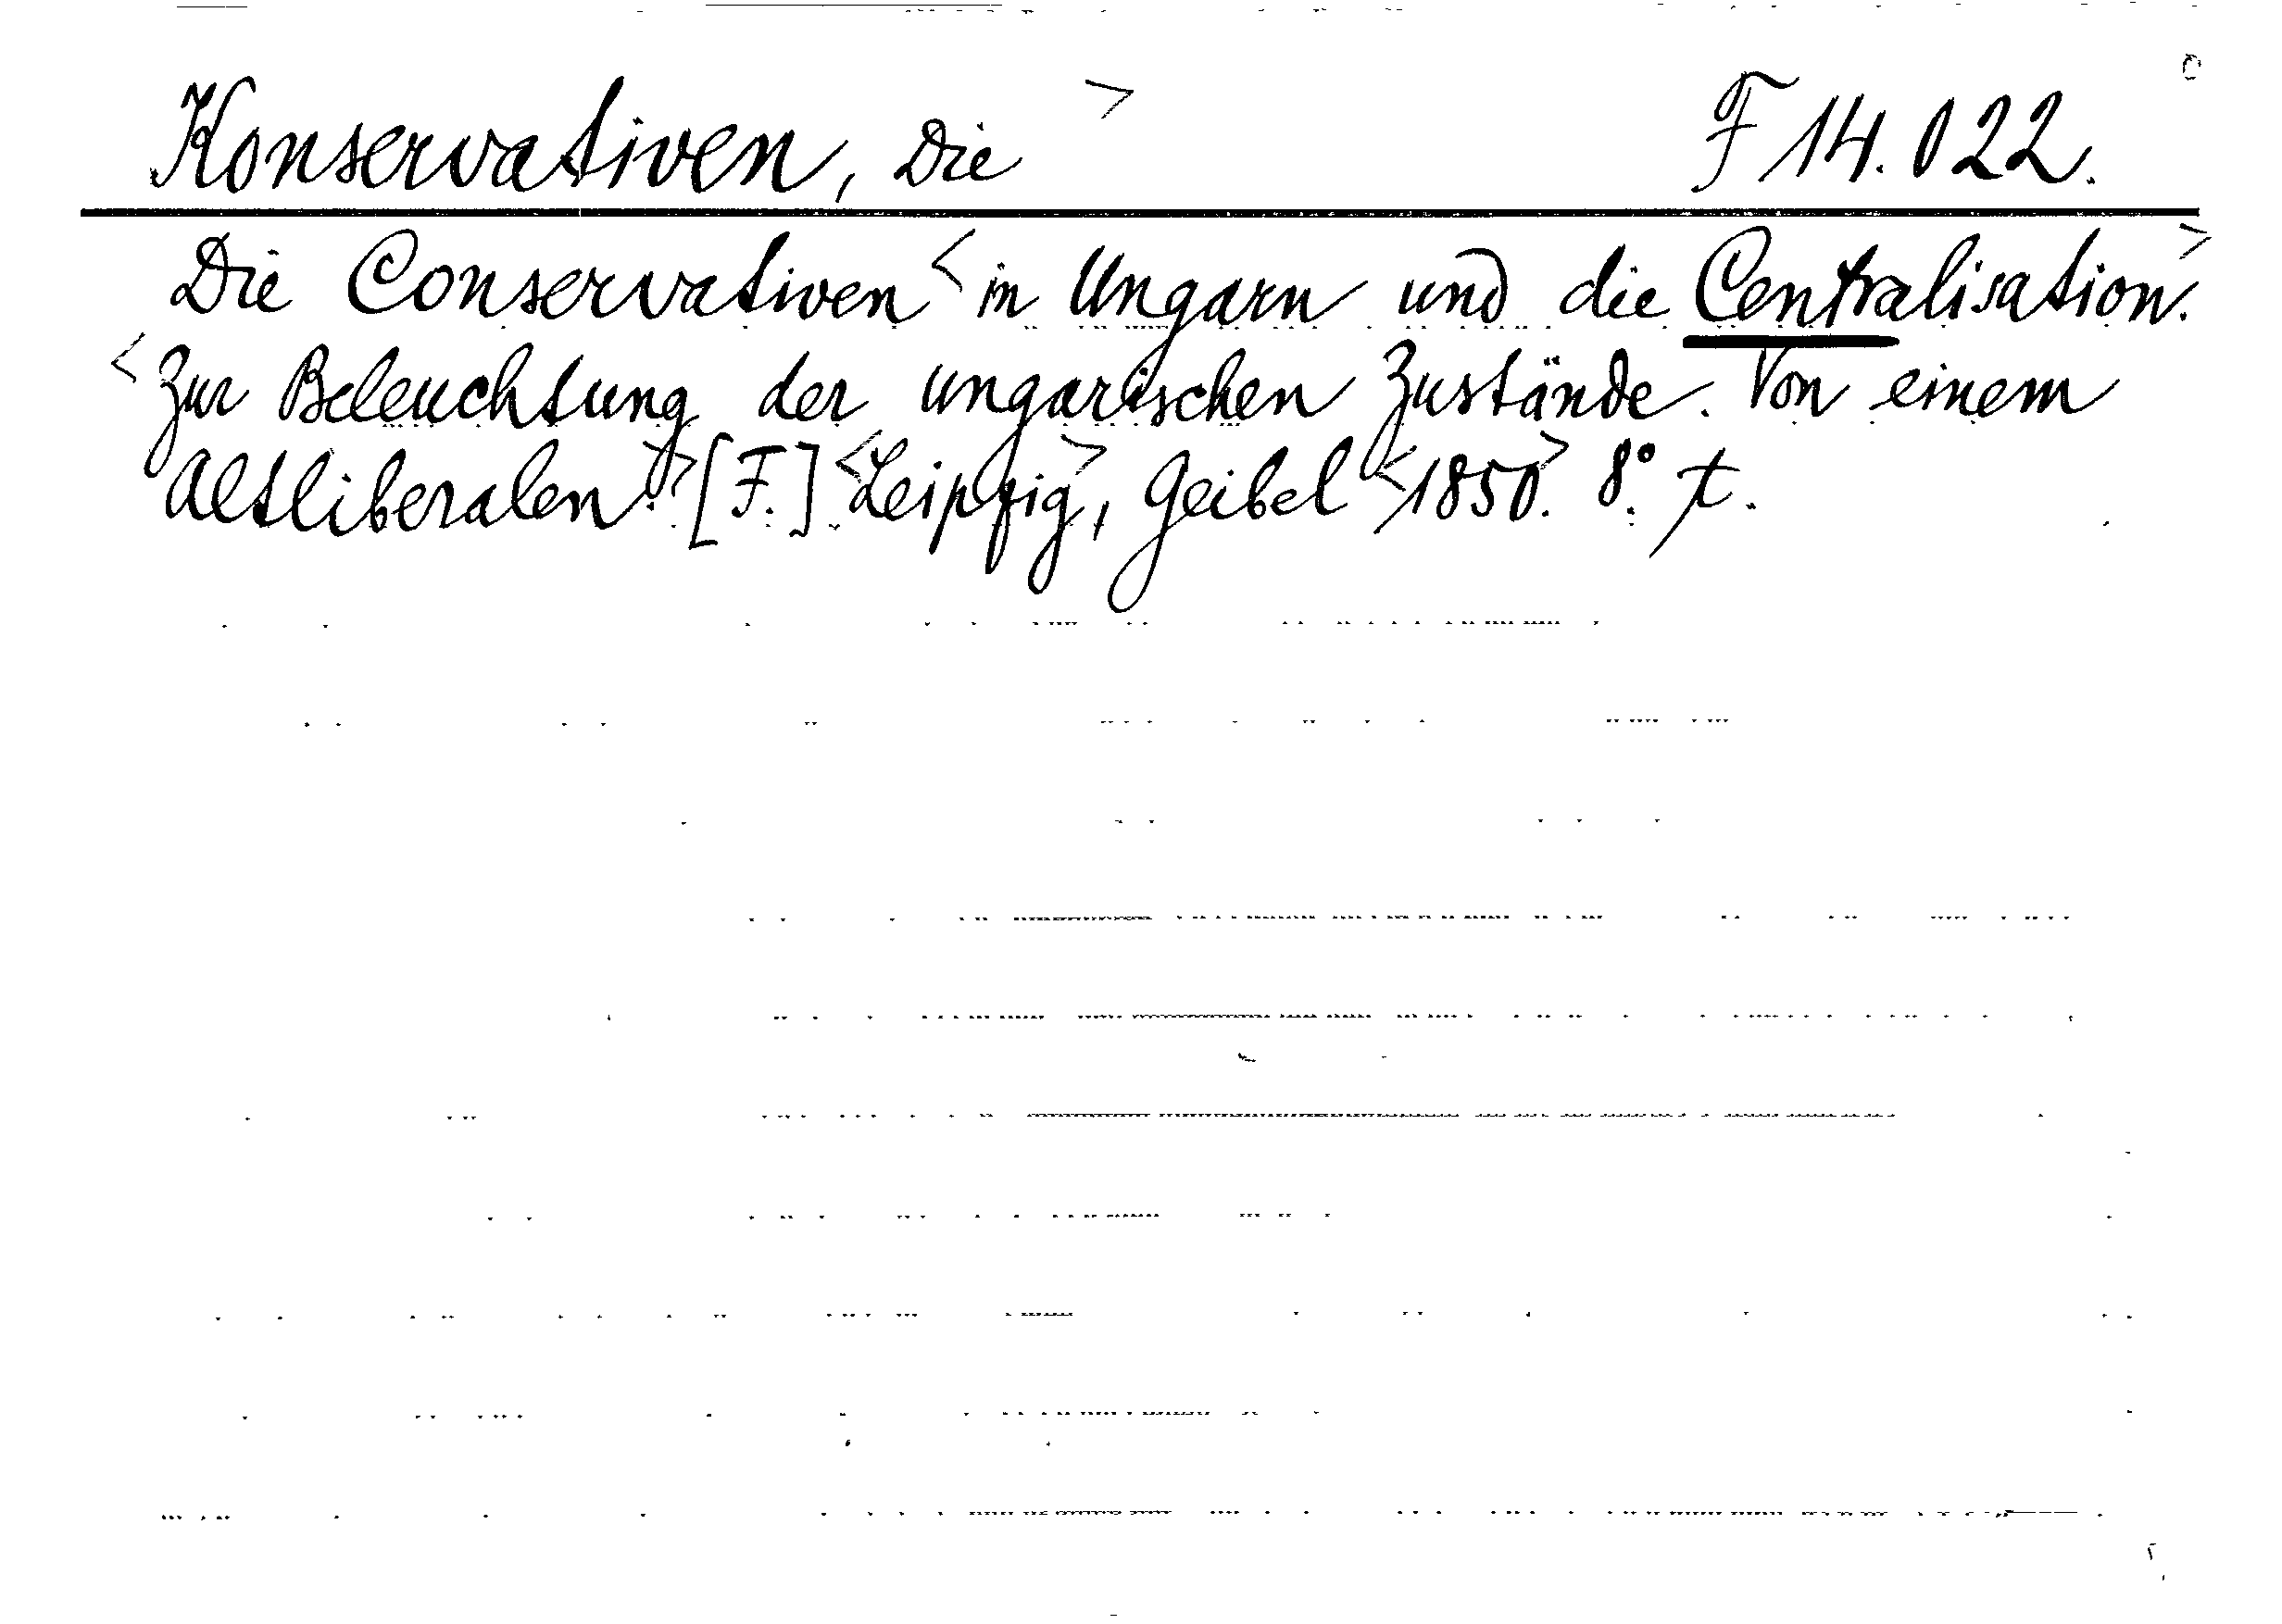 Konservativen, Die > F 14.022.
Die Conservativen < in Ungarn und die Centralisation. >
< Zur Beleuchtung der ungarischen Zustände. Von einem
Altliberalen. > [F.] < Leipzig >, Geibel < 1850. > 8°. t.